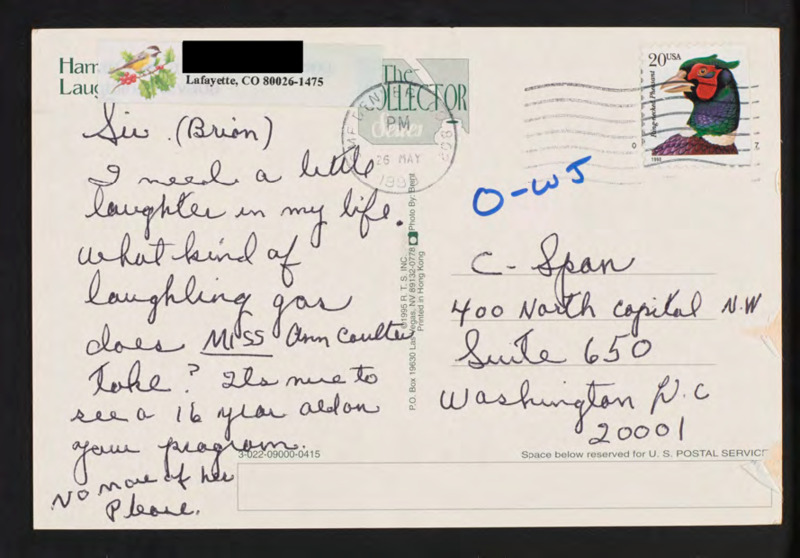 Ham
Laug
Lafayette, CO 80026-1475
The
COLLECTOR
Series
PM
26 MAY
20USA
Ring-necked Pheasant
1998
Sir (Brian)
I need a little
laughter in my life.
what kind of
laughling gas
does MISS Ann Coulter
take? Its nice to
see a 16 year old on
your program.
No more of her
Please.
©1995 R. T. S. INC.
P.O. Box 19630 Las Vegas, NV 89132-0778
Photo By: Brent
Printed in Hong Kong
O-WJ
C-Span
400 North Capital N.W
Suite 650
Washington D.C
20001
3-022-09000-0415
Space below reserved for U. S. POSTAL SERVICE